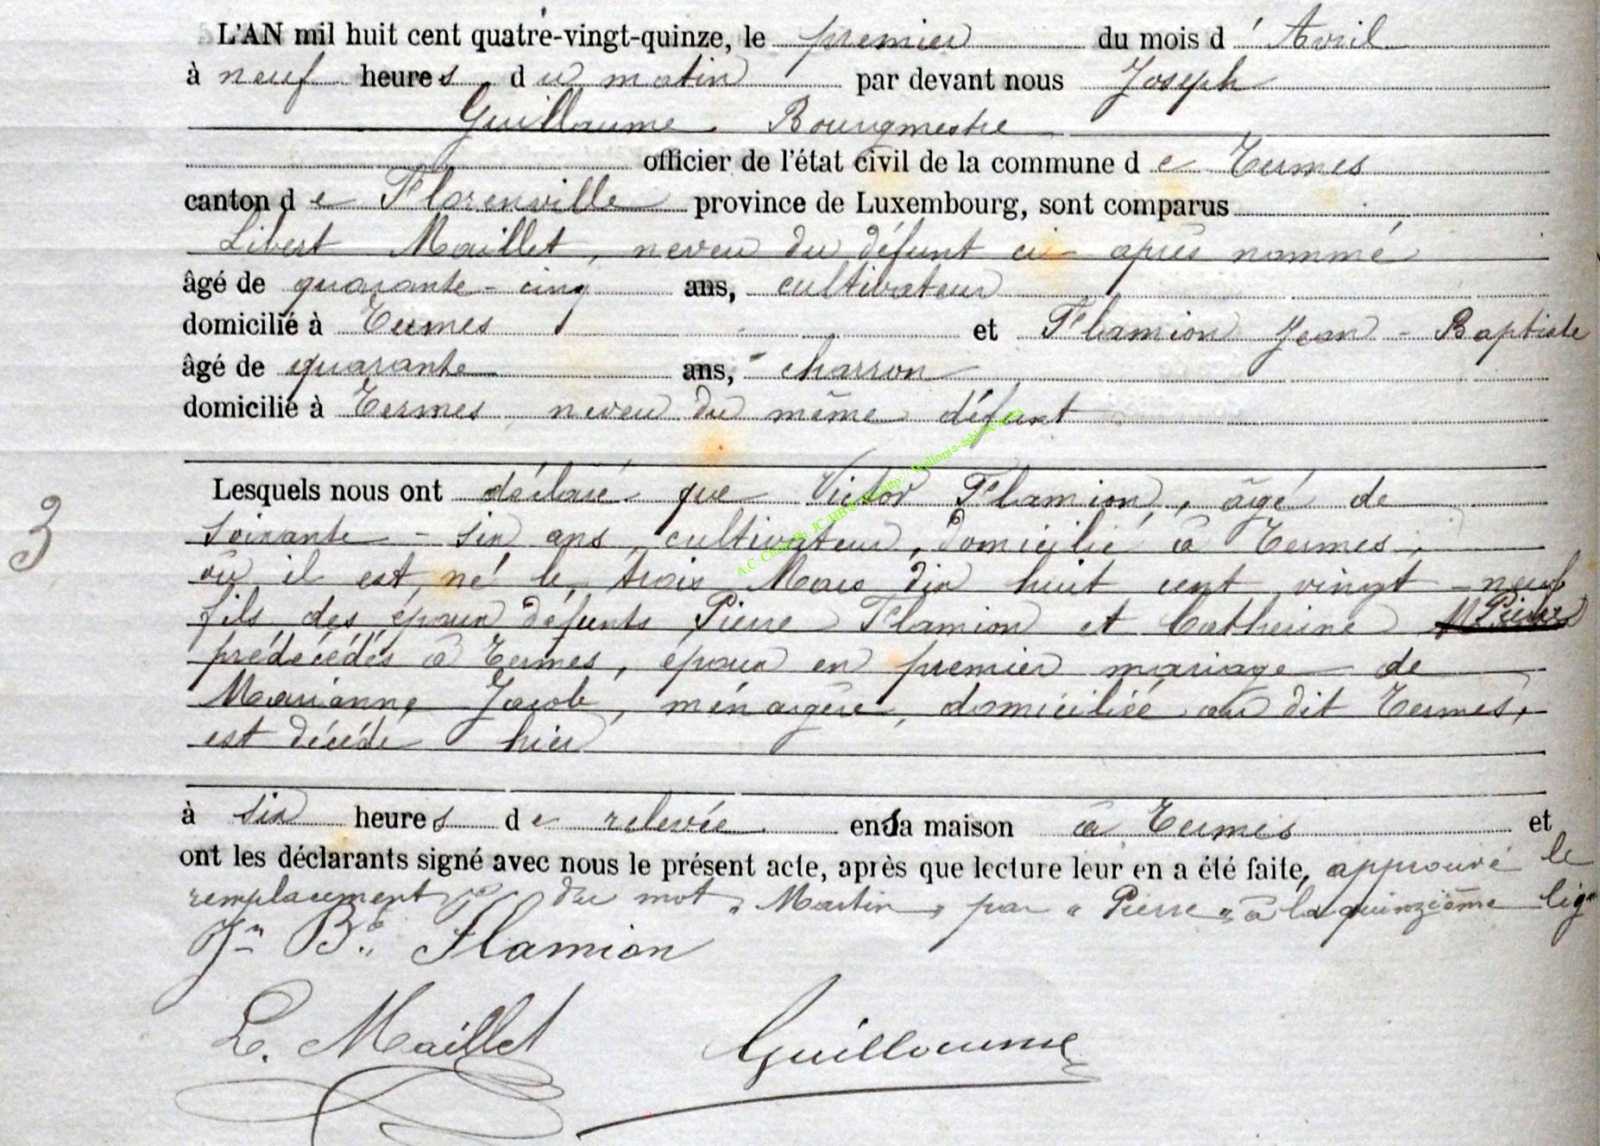 L'AN mil huit cent quatre-vingt-quinze, le premier du mois d' Avril
à neuf heures du matin par devant nous Joseph
Guillaume. Bourgmestre
officier de l'état civil de la commune de Termes
canton de Florenville province de Luxembourg, sont comparus
Libert Maillet, neveu du défunt ci-après nommé
âgé de quarante-cinq ans, cultivateur
domicilié à Termes et Flamion Jean-Baptiste
âgé de quarante ans, charron
domicilié à Termes neveu du même défunt
3
Lesquels nous ont déclaré que Victor Flamion, âgé de
soixante-six ans, cultivateur, domicilié à Termes,
où il est né le trois Mars dix huit cent vingt-neuf
fils des époux défunts Pierre Flamion et Catherine Pierre
prédécédés à Termes, époux en premier mariage de
Marianne Jacob, ménagère, domiciliée au dit Termes,
est décédé hier
à six heures de relevée en sa maison à Termes et
ont les déclarants signé avec nous le présent acte, après que lecture leur en a été faite, approuvé le
remplacement du mot "Martin" par "Pierre" à la quinzième lig
Jn Bte Flamion
L. Maillet Guillaume